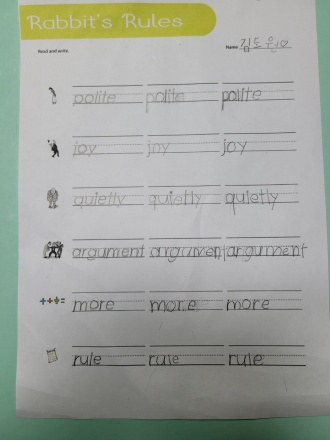 Rabbit's Rules
Read and write.
Name 김도윤
polite polite polite
joy joy joy
quietly quietly quietly
argument argument argument
+ + + =
more more more
rule rule rule